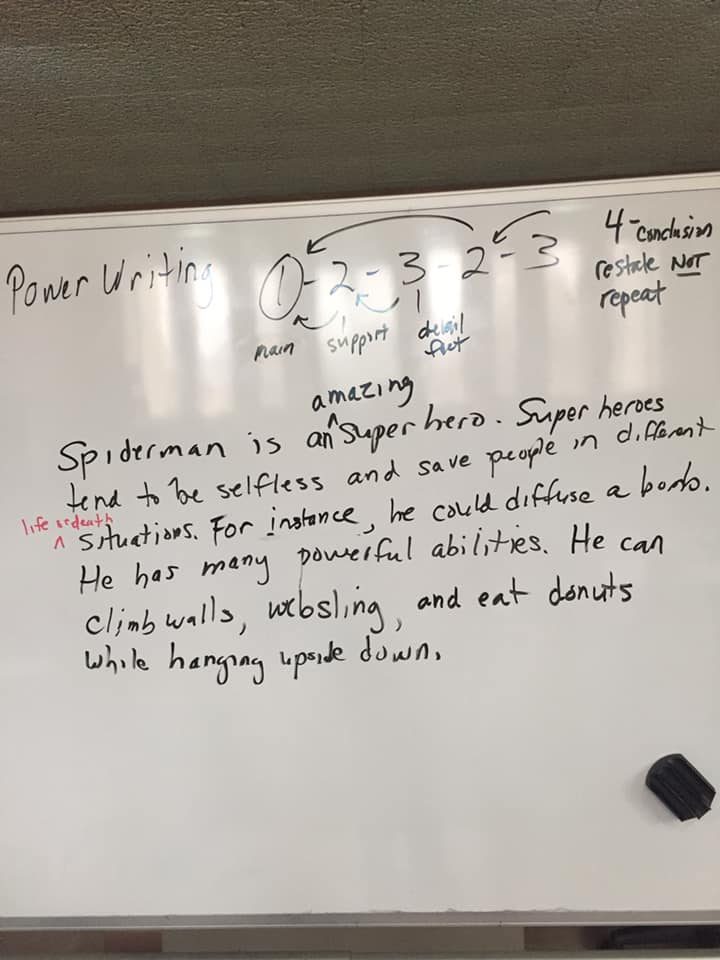 Power Writing ①-2-3-2-3
4-conclusion
restate NOT
repeat
main support detail
fact
amazing
Spiderman is an ^ Super hero. Super heroes
tend to be selfless and save people in different
life or death
^ situations. For instance, he could diffuse a bomb.
He has many powerful abilities. He can
climb walls, websling, and eat donuts
while hanging upside down.